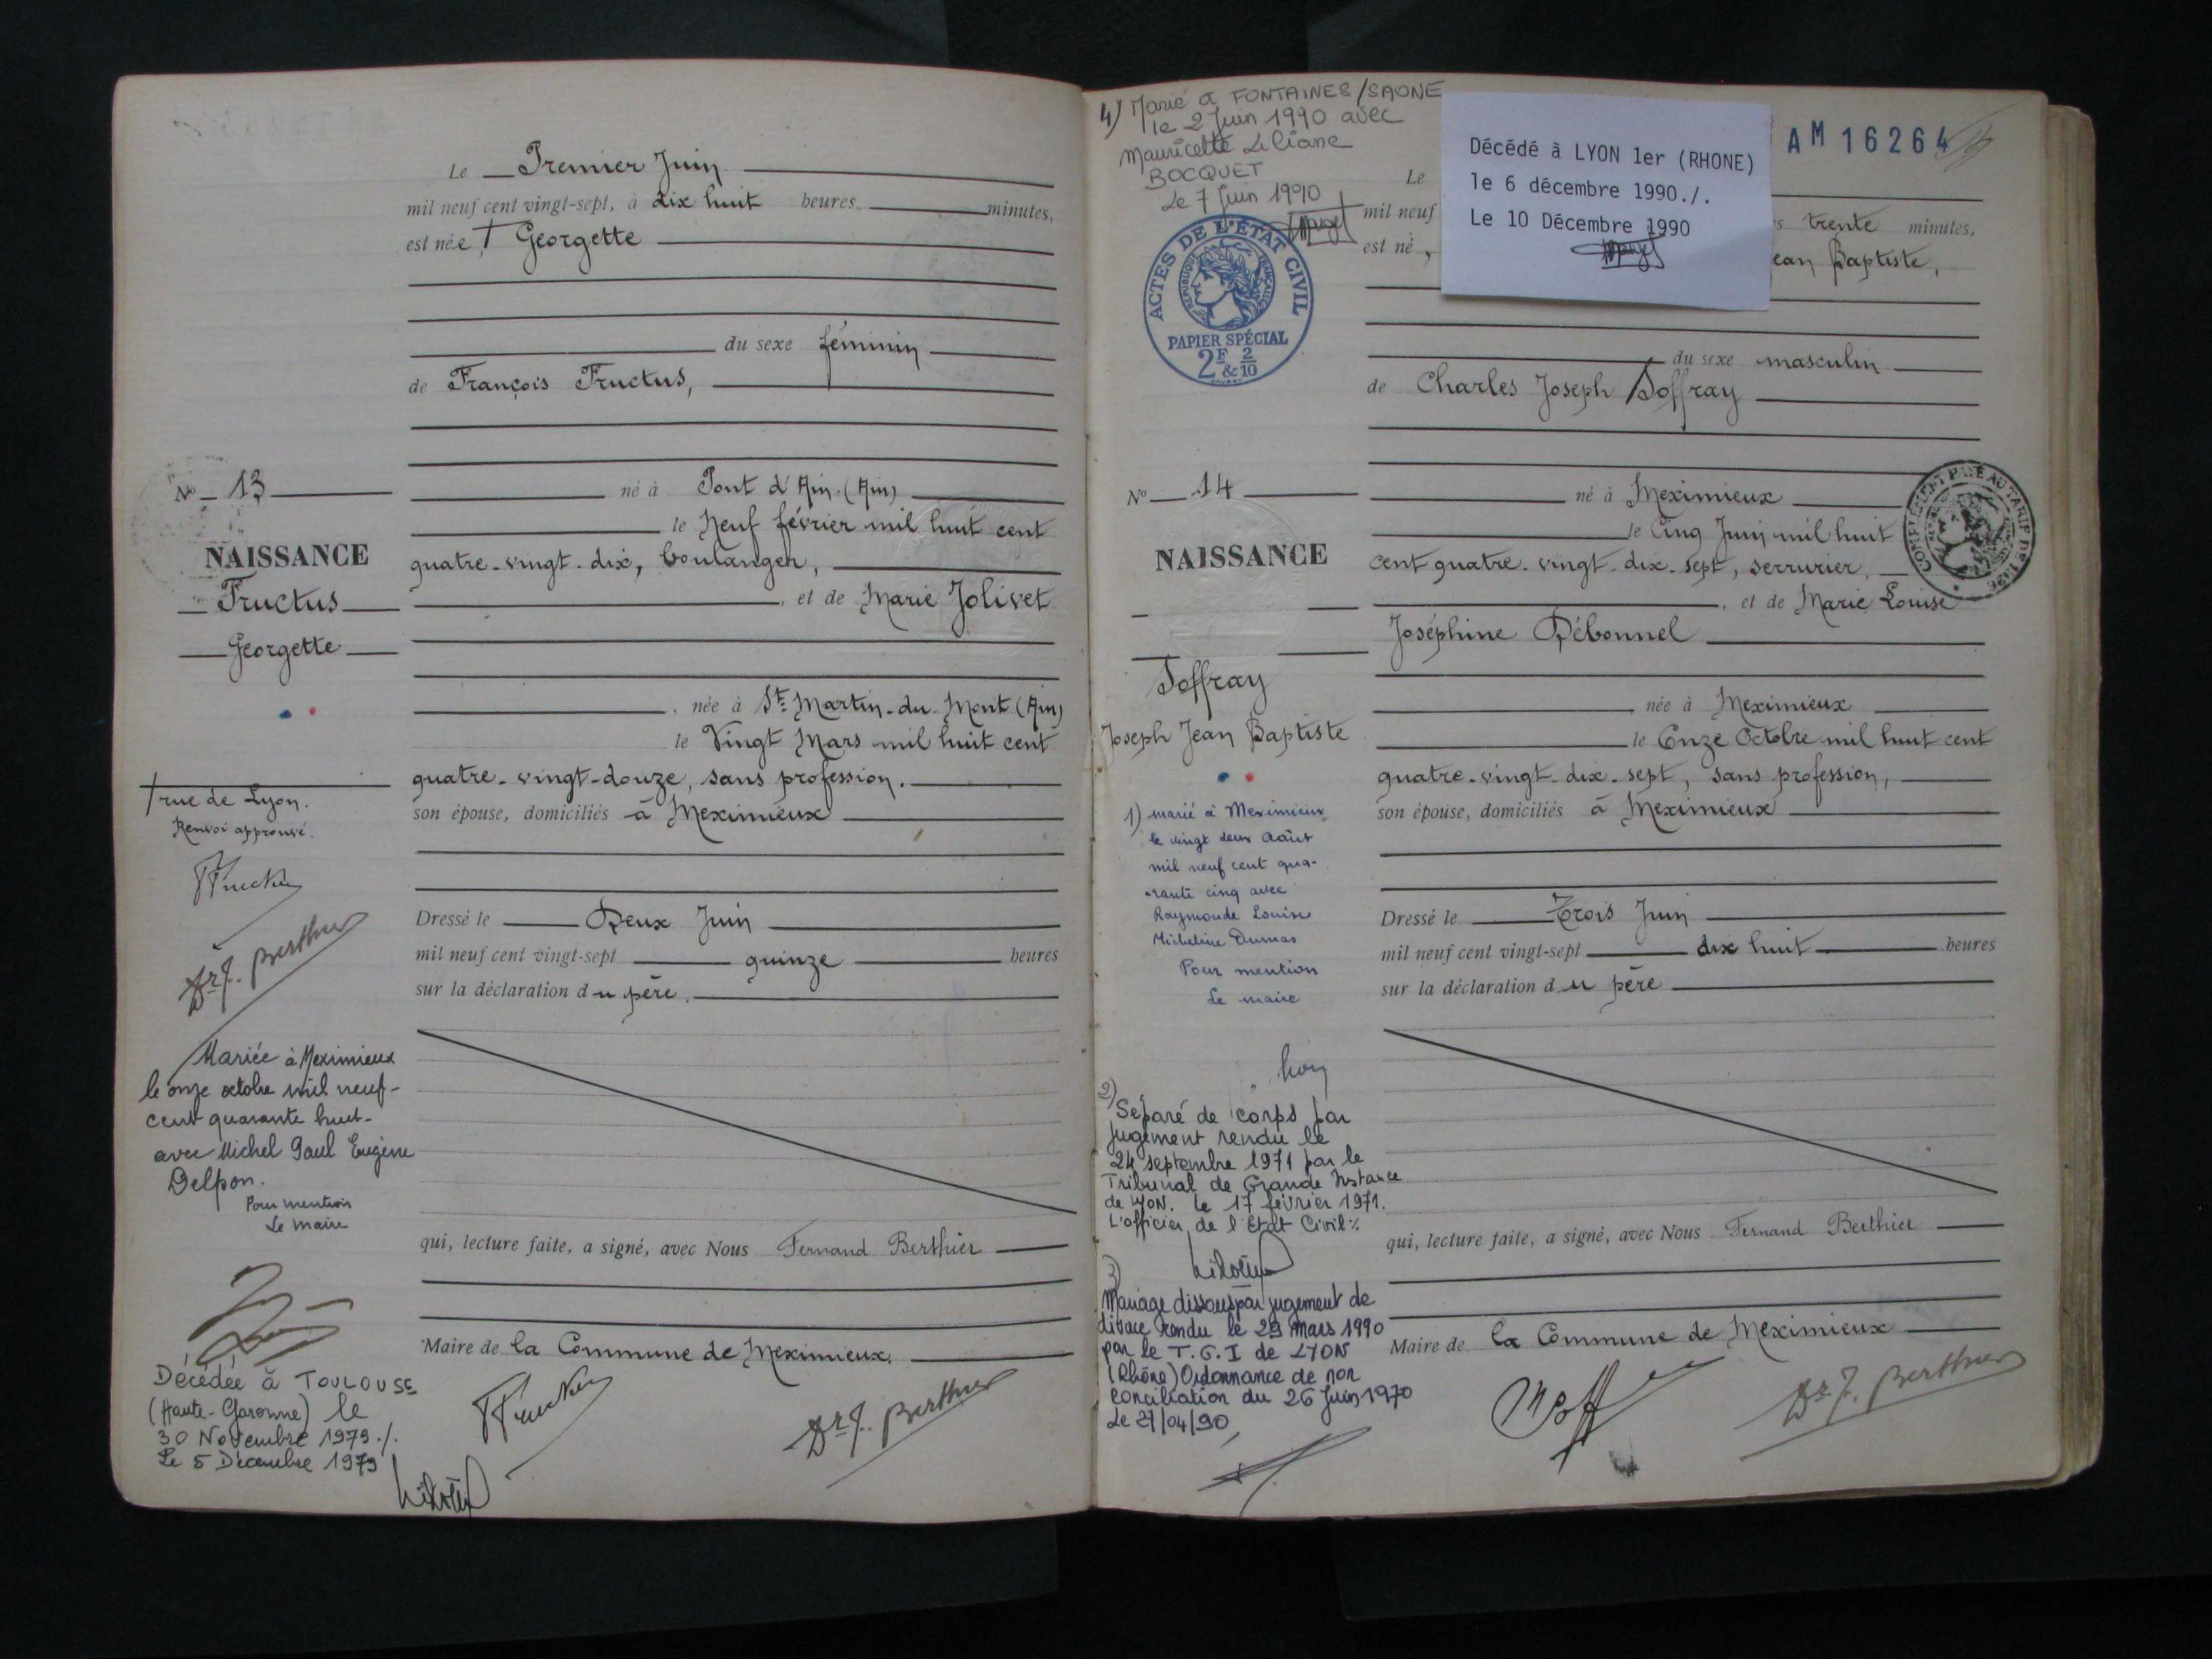 Le Premier Juin
mil neuf cent vingt-sept, à dix huit heures, minutes,
est née † Georgette
du sexe féminin
de François Fructus,
né à Pont d'Ain (Ain)
le Neuf février mil huit cent
quatre-vingt-dix, boulanger,
et de Marie Jolivet
née à St. Martin-du-Mont (Ain)
le Vingt Mars mil huit cent
quatre-vingt-douze, sans profession.
son épouse, domiciliés à Meximieux
Dressé le Deux Juin
mil neuf cent vingt-sept quinze heures
sur la déclaration du père.
qui, lecture faite, a signé, avec Nous Fernand Berthier
Maire de la Commune de Meximieux.
Dr F. Berthier
No 13
NAISSANCE
Fructus
Georgette
† rue de Lyon.
Renvoi approuvé.
Dr F. Berthier
Mariée à Meximieux
le onze octobre mil neuf-
cent quarante huit-
avec Michel Paul Eugène
Delpon.
Pour mention
Le maire
Décédée à TOULOUSE
(Haute-Garonne) le
30 Novembre 1979./.
Le 5 Décembre 1979
4) Marié à FONTAINES/SAONE
le 2 Juin 1990 avec
Mauricette Liliane
BOCQUET
Le 7 Juin 1990
ACTES DE L'ÉTAT CIVIL
RÉPUBLIQUE FRANÇAISE
PAPIER SPÉCIAL
2F & 2/10
Décédé à LYON 1er (RHONE)
le 6 décembre 1990./.
Le 10 Décembre 1990
AM 16264
Le
mil neuf s trente minutes,
est né, ean Baptiste,
du sexe masculin
de Charles Joseph Soffray
né à Meximieux
le Cinq Juin mil huit
cent quatre-vingt-dix-sept, serrurier,
et de Marie Louise
Joséphine Débonnel
née à Meximieux
le Onze Octobre mil huit cent
quatre-vingt-dix-sept, sans profession,
son épouse, domiciliés à Meximieux
Dressé le Trois Juin
mil neuf cent vingt-sept dix huit heures
sur la déclaration du père
qui, lecture faite, a signé, avec Nous Fernand Berthier
Maire de la Commune de Meximieux
Dr F. Berthier
No 14
NAISSANCE
Soffray
Joseph Jean Baptiste
1) marié à Meximieux
le vingt deux Août
mil neuf cent qua-
-rante cinq avec
Raymonde Louise
Micheline Dumas
Pour mention
Le maire
2) Séparé de corps par
jugement rendu le
24 septembre 1971 par le
Tribunal de Grande Instance
de LYON. Le 17 février 1971.
L'officier de l'Etat Civil ./.
3)
Mariage dissous par jugement de
divorce rendu le 29 Mars 1990
par le T.G.I de LYON
(Rhône) Ordonnance de non
conciliation du 26 Juin 1970
Le 27/04/90